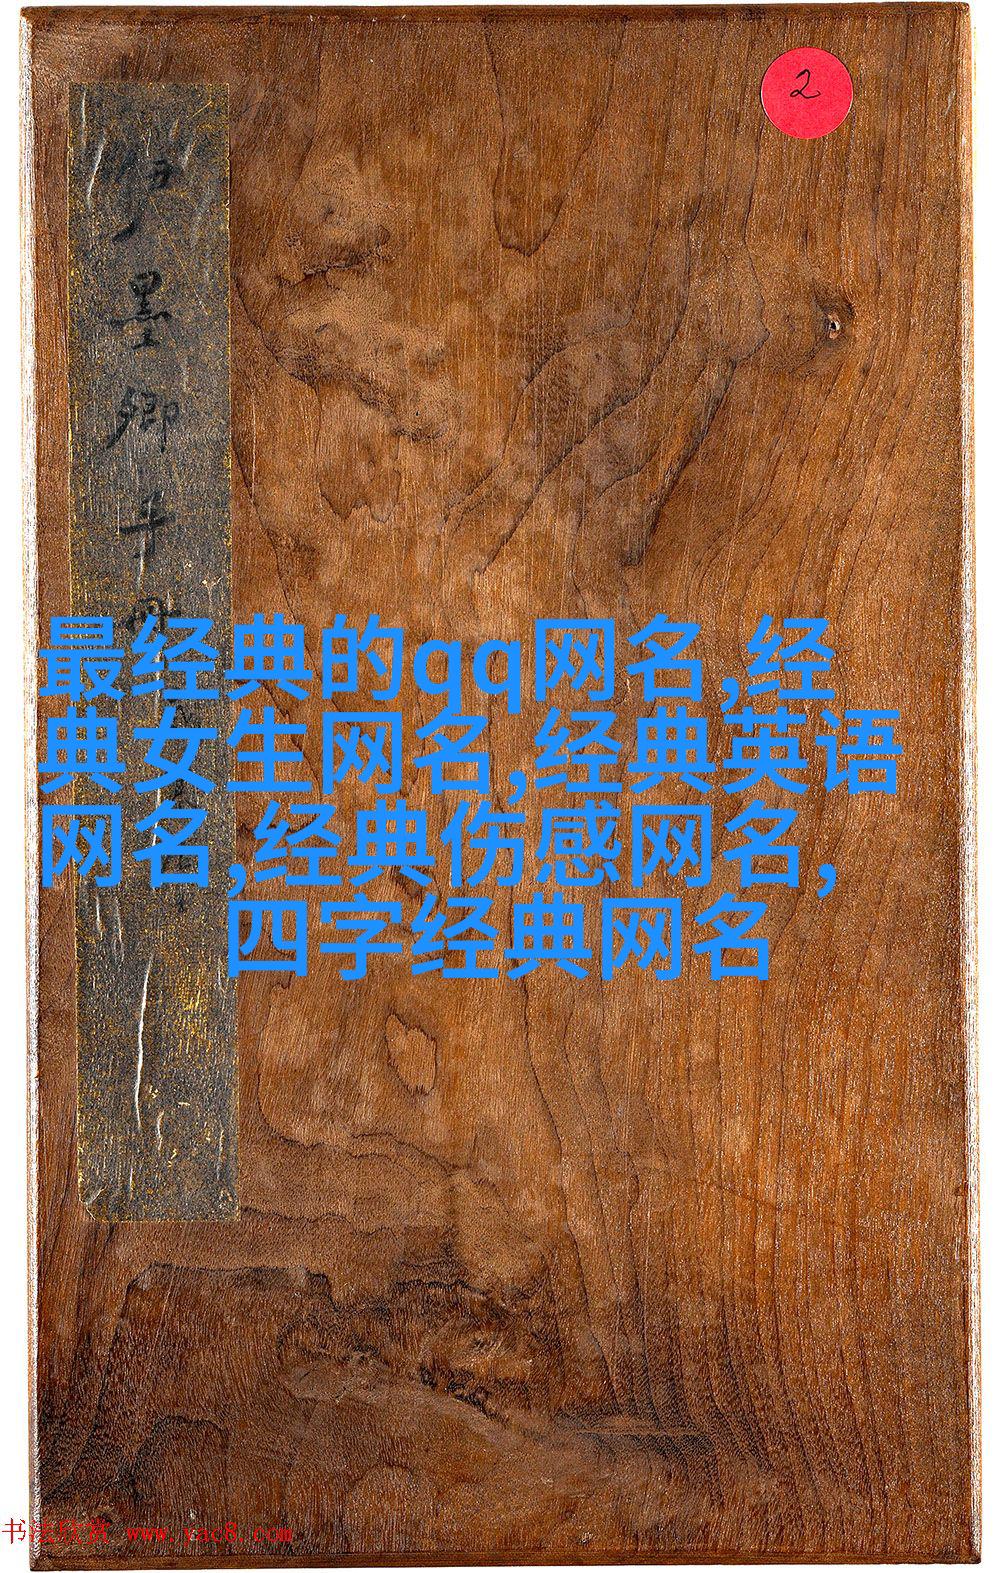 2
墨卿手冊
最经典的qq网名,经
典女生网名,经典英语
网名,经典伤感网名,
四字经典网名
书法欣赏 www.yac8.com